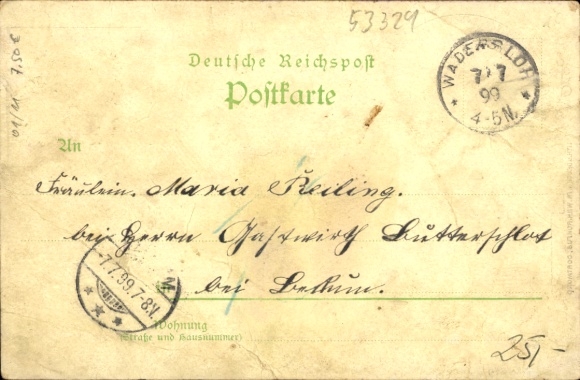 53329
Deutsche Reichspost
Postkarte
WADERSLOH
7/7
99
4-5N.
An
Fräulein. Maria Reiling.
bei Herrn Gastwirth Butterschlot
bei Beckum.
7.7.99.7-8.V.
Wohnung
(Straße und Hausnummer)
25,-
01/11 7,50€